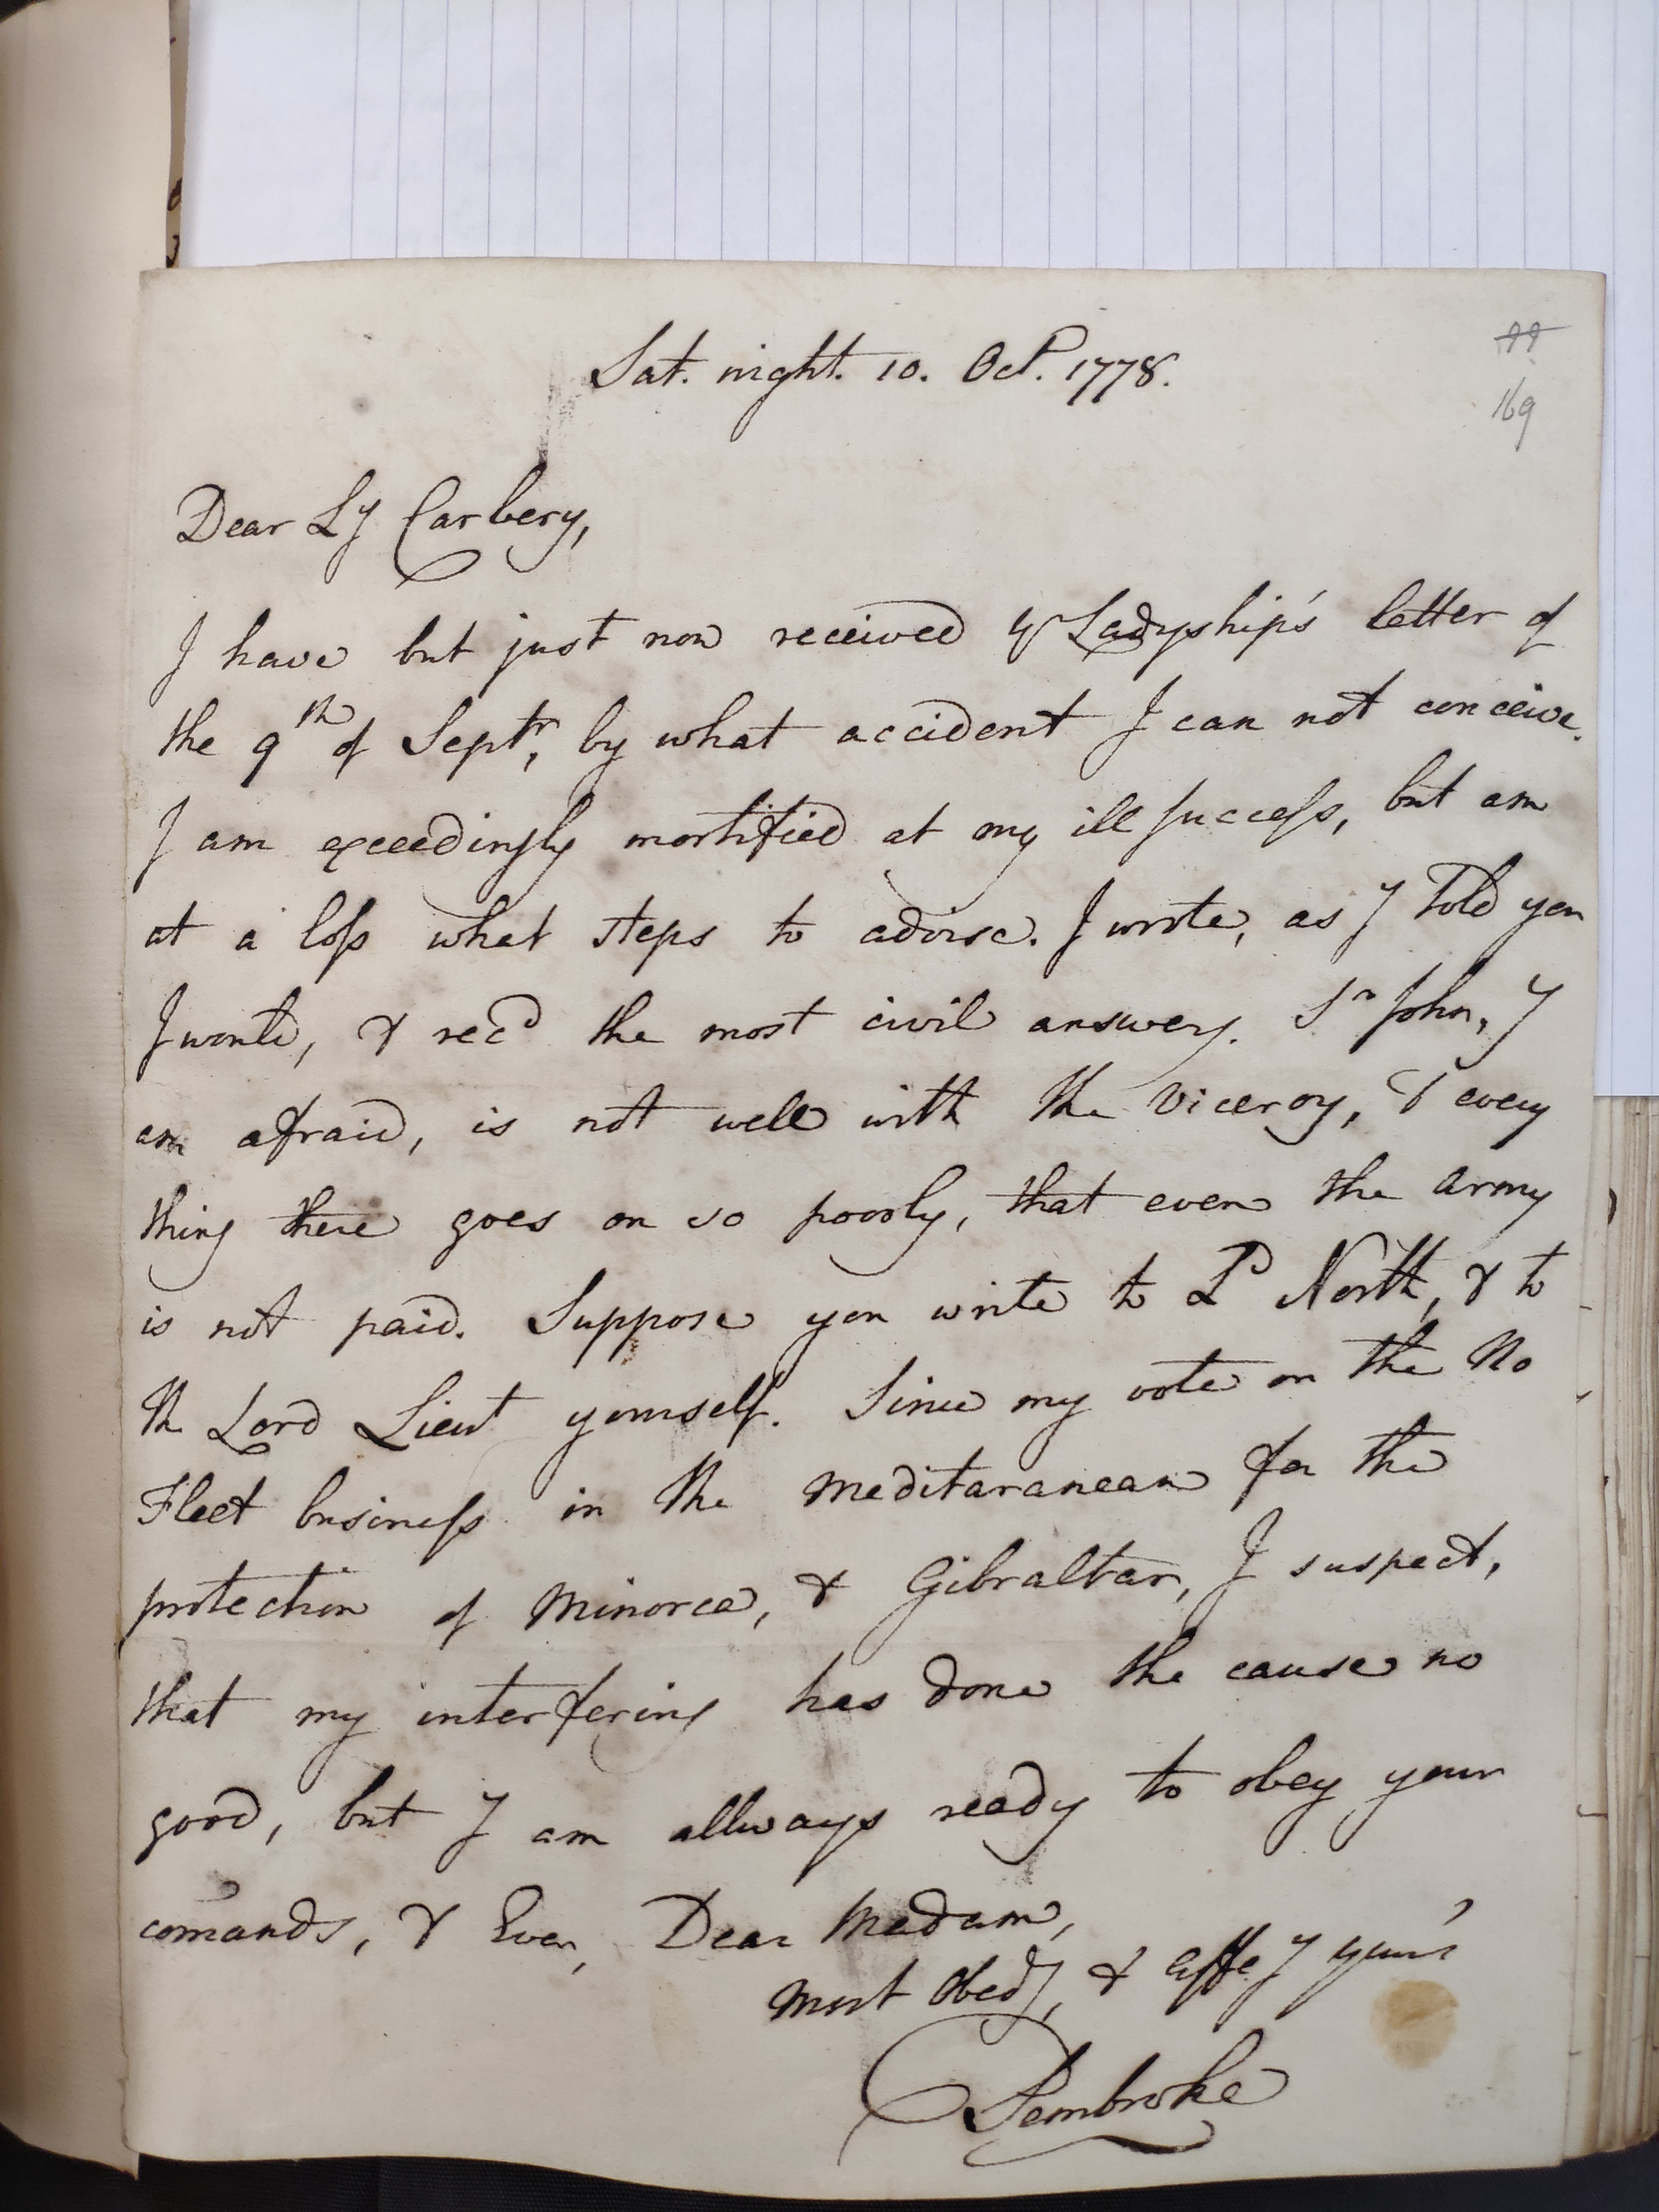 Sat. night. 10. Oct. 1778.
169
Dear Ly Carbery,
I have but just now received yr Ladyship's letter of
the 9th of Septr, by what accident I can not conceive.
I am exceedingly mortified at my ill success, but am
at a loss what steps to advise. I wrote, as I told you
I would, & recd the most civil answers. Sr John, I
am afraid, is not well with the Viceroy, & every
thing there goes on so poorly, that even the army
is not paid. Suppose you write to Ld North, & to
the Lord Lieut yourself. Since my vote on the No
Fleet business in the Meditaranean for the
protection of Minorca, & Gibraltar, I suspect,
that my interfering has done the cause no
good, but I am allways ready to obey your
comands, & Ever, Dear Madam,
most obedy, & affey yours
Pembroke